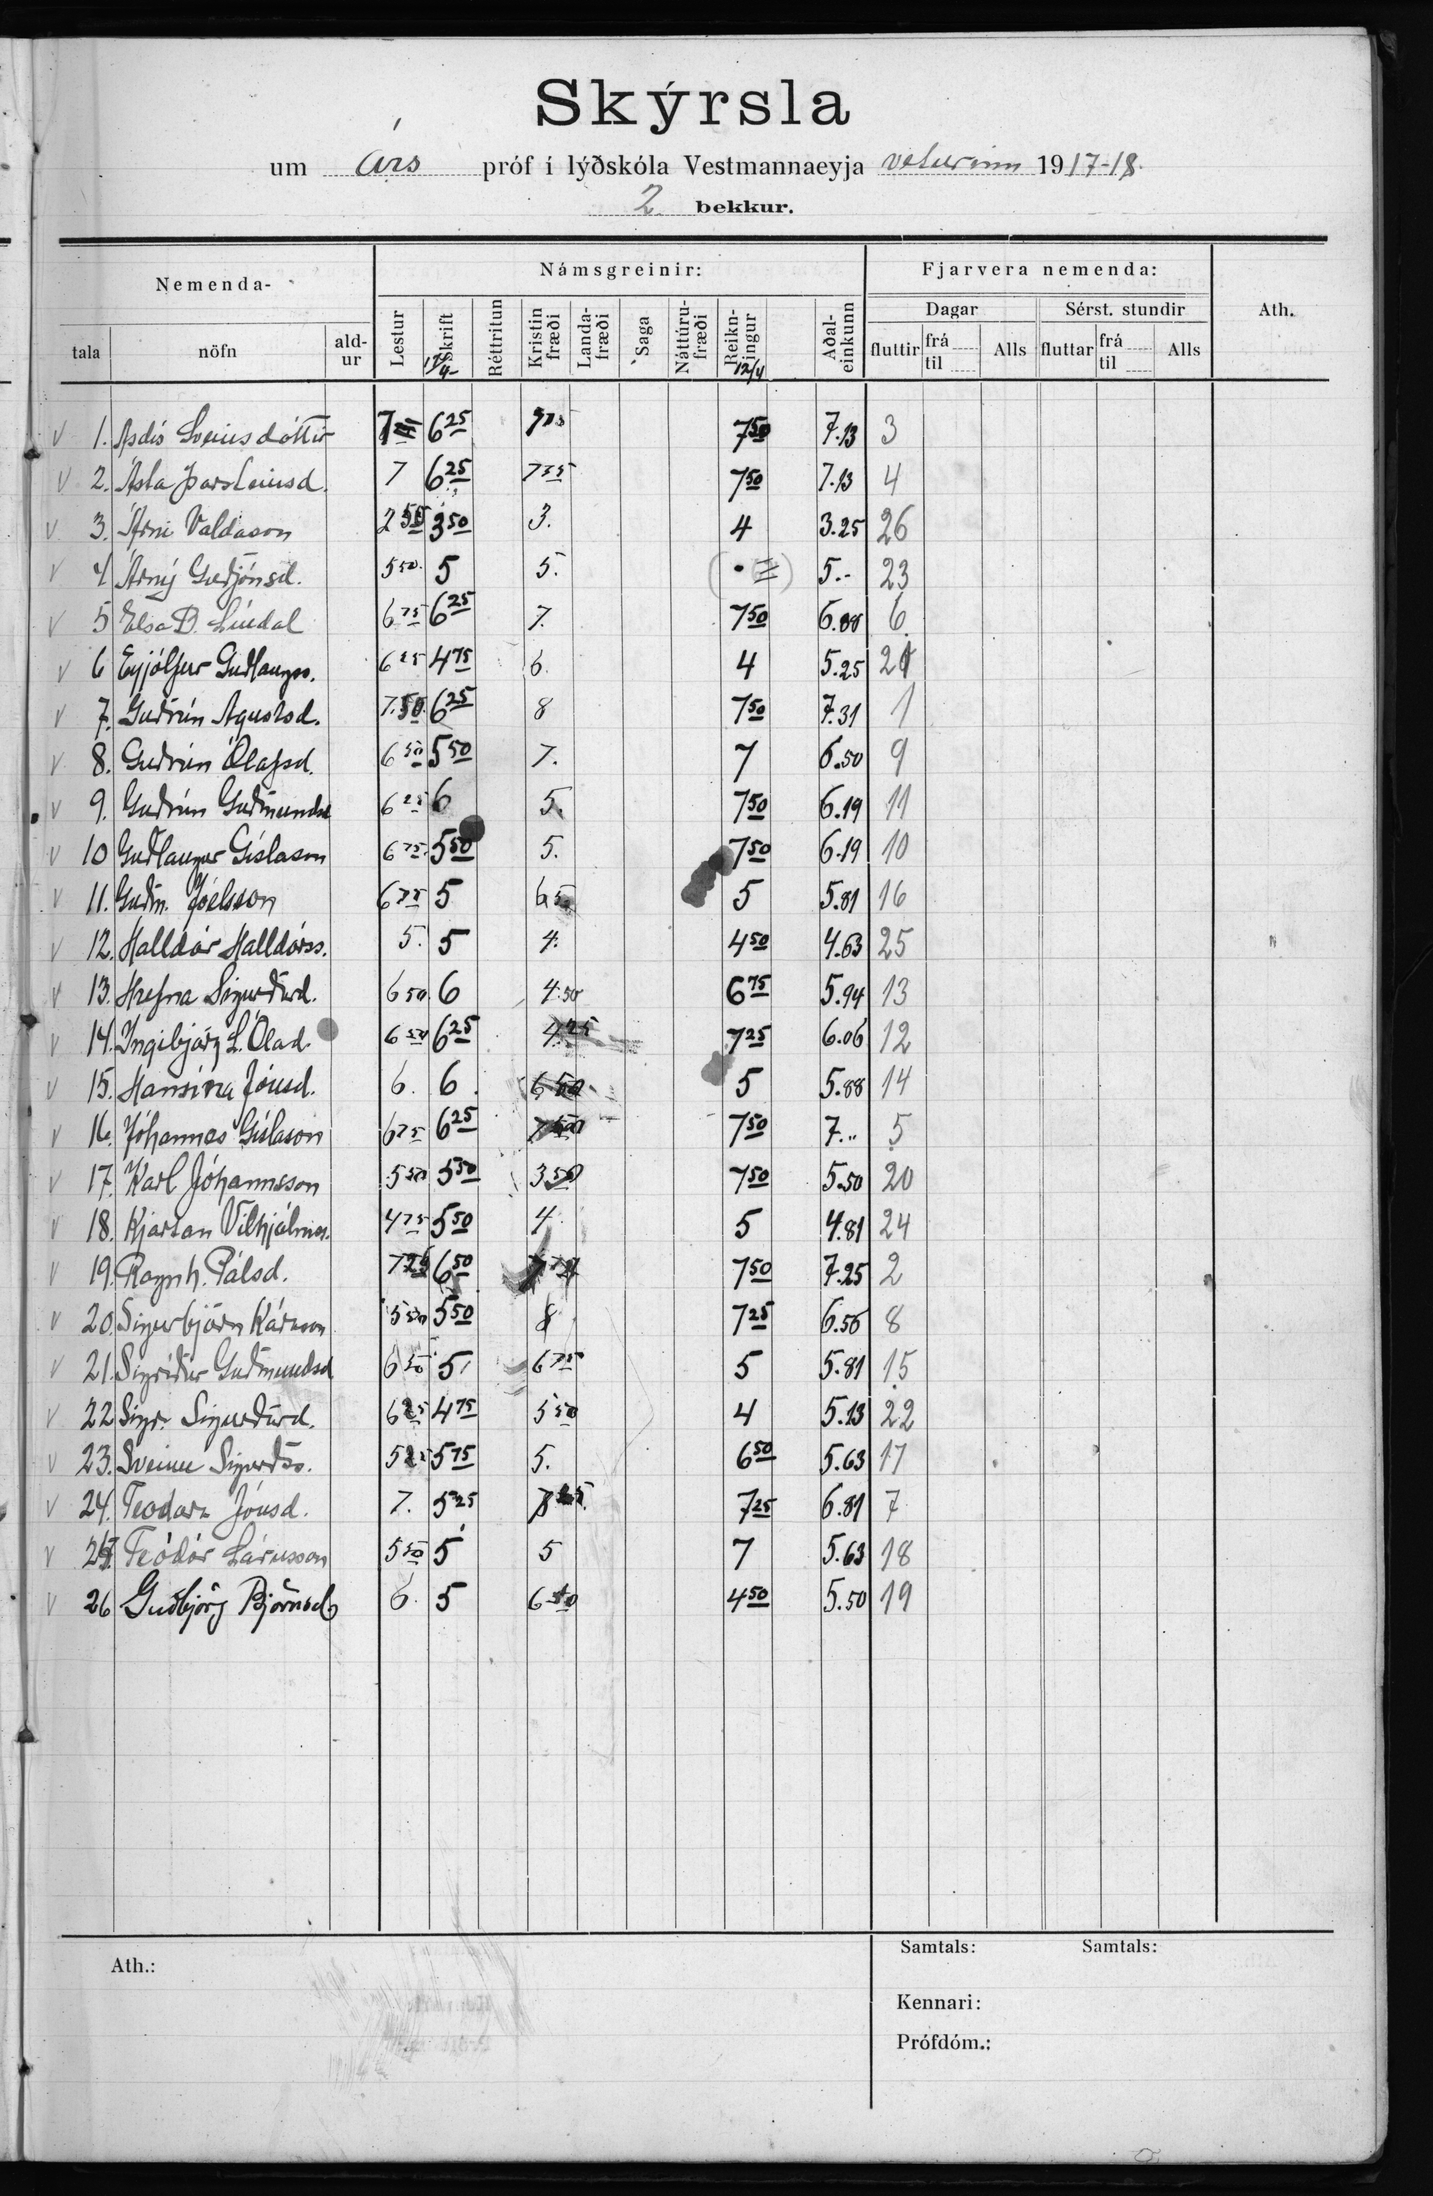 Skýrsla
um árs próf í lýðskóla Vestmannaeyja veturinn 1917-18.
2. bekkur.
Nemenda- Námsgreinir: Fjarvera nemenda: Ath.
Dagar Sérst. stundir
tala nöfn ald-ur Lestur Skrift Réttritun Kristin fræði Landa-fræði Saga Náttúru-fræði Reikn-ingur 12/4 Aðal-einkunn fluttir frá til Alls fluttar frá til Alls
v 1. Ásdís Sveinsdóttir 7 6 25 750 7.13 3
v 2. Ásta Þorsteinsd. 7 6 25 7 25 7 50 7.13 4
v 3. Árni Valdason 2 50 3 50 3. 4 3.25 26
v 4 Árný Guðjónsd. 5 50. 5 5. 5.- 23
v 5 Elsa D. Líndal 6 75 6 25 7. 7 50 6.88 6
v 6 Eyjólfur Guðlaugss. 6 25 4 75 6. 4 5.25 21
v 7. Guðrún Ágústsd. 7.50. 6 25 8 7 50 7.31 1
v 8. Guðrún Ólafsd. 6 50 5 50 7. 7 6.50 9
v 9. Guðrún Guðmundsd 6 25 6 5. 7 50 6.19 11
v 10 Guðlaugur Gíslason 6 75. 5 50 5. 7 50 6.19 10
v 11. Guðm. Jóelsson 6 75 5 6 50 5 5.81 16
v 12. Halldór Halldórss. 5. 5 4. 4 50 4.63 25
v 13. Hrefna Sigurðard. 6 50. 6 4.50 6 75 5.94 13
v 14. Ingibjörg L. Ólad. 6 50 6 25 4 25 7 25 6.06 12
v 15. Hansína Jónsd. 6. 6. 6 50 5 5.88 14
v 16. Jóhannes Gíslason 6 75 6 25 7 50 7 50 7.. 5
v 17. Karl Jóhannsson 5 50 5 50 3 50 7 50 5.50 20
v 18. Kjartan Vilhjálmss. 4 75 5 50 4. 5 4.81 24
v 19. Ragnh. Pálsd. 7 25 6 50 7 50 7.25 2
v 20. Sigurbjörn Kárason 5 50 5 50 8 7 25 6.56 8
v 21. Sigríður Guðmundsd 6 50 5 6 75 5 5.81 15
v 22 Sigr. Sigurðard. 6 25 4 75 5 50 4 5.13 22
v 23. Sveinn Sigurðss. 5 25 5 75 5. 6 50 5.63 17
v 24. Teodora Jónsd. 7. 5 25 7 25 6.81 7
v 25 Teódór Lárusson 5 50 5 5 7 5.63 18
v 26 Guðbjörg Björnsd 6. 5 6 50 4 50 5.50 19
Ath.: Samtals: Samtals:
Kennari:
Prófdóm.: